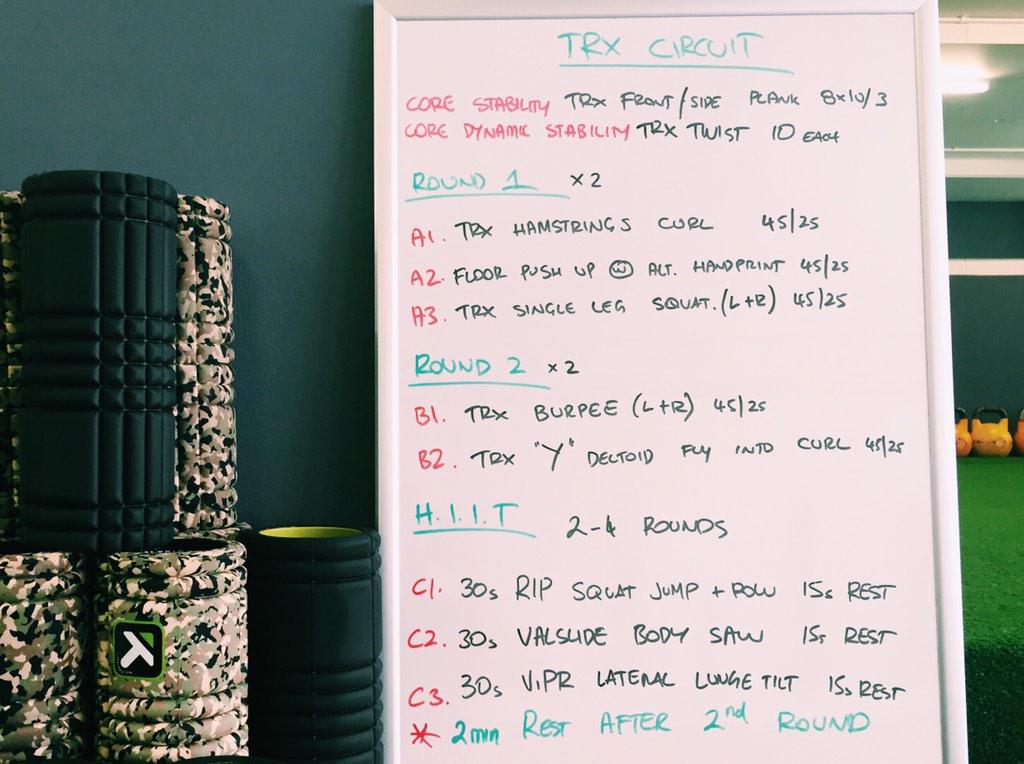 TRX CIRCUIT
CORE STABILITY TRX FRONT/SIDE PLANK 8x10/3
CORE DYNAMIC STABILITY TRX TWIST 10 EACH
ROUND 1 x2
A1. TRX HAMSTRINGS CURL 45/25
A2. FLOOR PUSH UP ALT. HANDPRINT 45/25
A3. TRX SINGLE LEG SQUAT. (L+R) 45/25
ROUND 2 x2
B1. TRX BURPEE (L+R) 45/25
B2. TRX "Y" DELTOID FLY INTO CURL 45/25
H.I.I.T 2-4 ROUNDS
C1. 30s RIP SQUAT JUMP + ROW 15s REST
C2. 30s VALSLIDE BODY SAW 15s REST
C3. 30s ViPR LATERAL LUNGE TILT 15s REST
* 2min REST AFTER 2nd ROUND